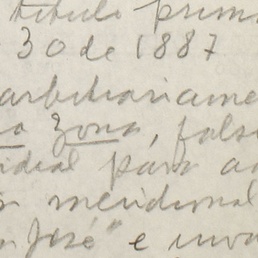 titulo prim
30 de 1887
arbitrariame
zona, fals
idial para a
meridional
José" e inva